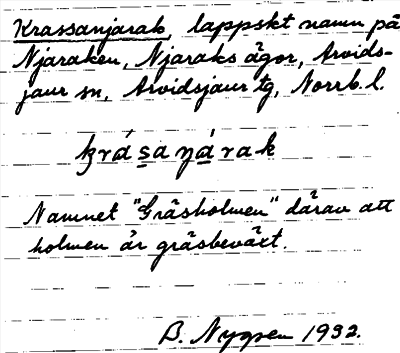 Krassanjarab, lappskt namn på
Njaraken, Njaraks ägor, Arvids-
jaur sn, Arvidsjaur tg, Norrb. l.
k̨rásaŋárak
Namnet "Gräsholmen" därav att
holmen är gräsbeväxt.
B. Nygren 1932.